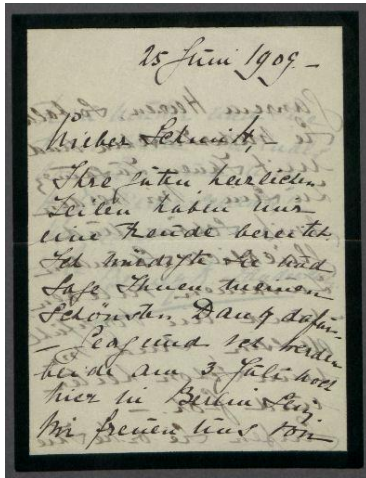 25 Juni 1909.–
Lieber Schmidt, –
Ihre guten herzlichen
Zeilen haben mir
eine Freude bereitet.
Ich würdigte sie und
sage Ihnen meinen
Schönsten Dank dafür
– und ich werden
beide am 3. Juli noch
hier in Berlin
Wir freuen uns von